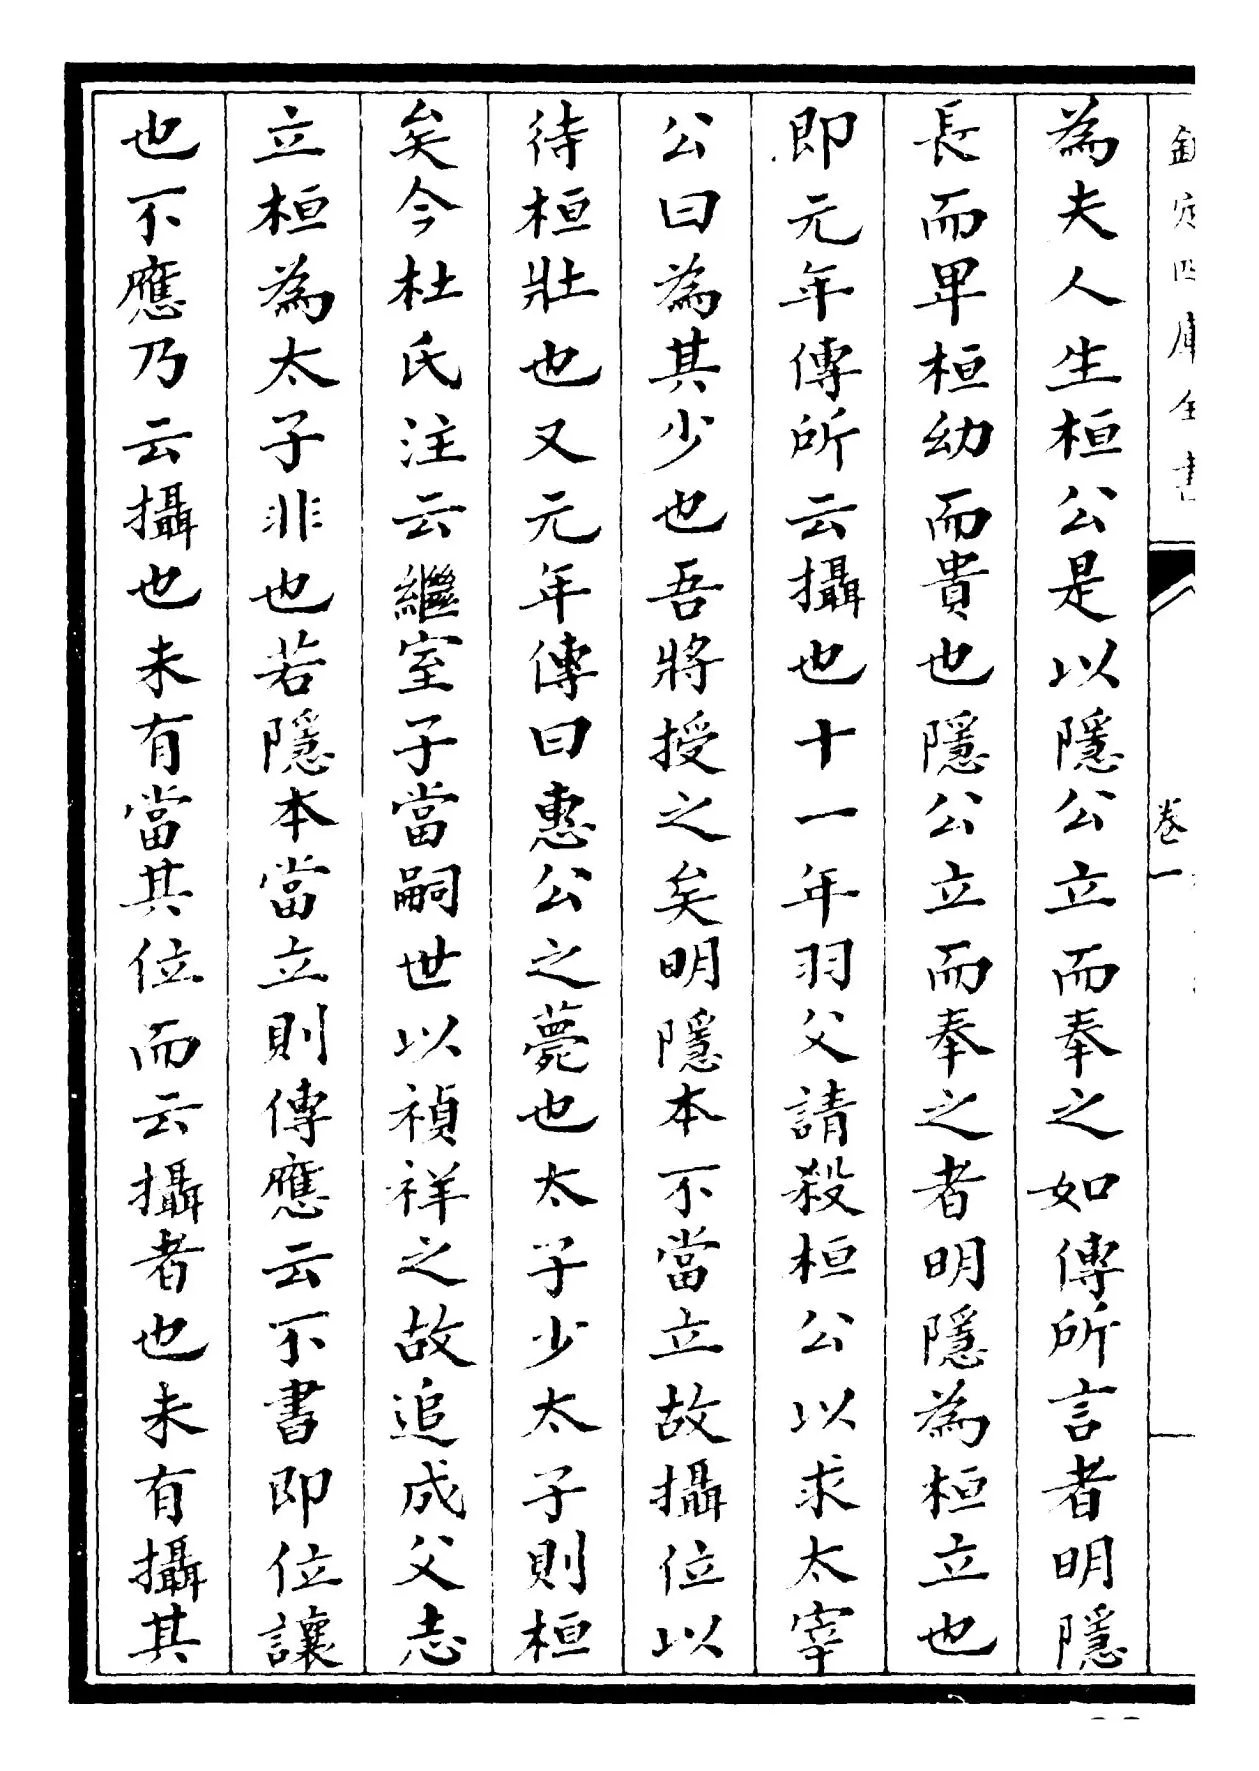 欽定四庫全書
卷一
為夫人生桓公是以隱公立而奉之如傳所言者明隱
長而卑桓幼而貴也隱公立而奉之者明隱為桓立也
即元年傳所云攝也十一年羽父請殺桓公以求太宰
公曰為其少也吾將授之矣明隱本不當立故攝位以
待桓壯也又元年傳曰惠公之薨也太子少太子則桓
矣今杜氏注云繼室子當嗣世以禎祥之故追成父志
立桓為太子非也若隱本當立則傳應云不書即位讓
也不應乃云攝也未有當其位而云攝者也未有攝其